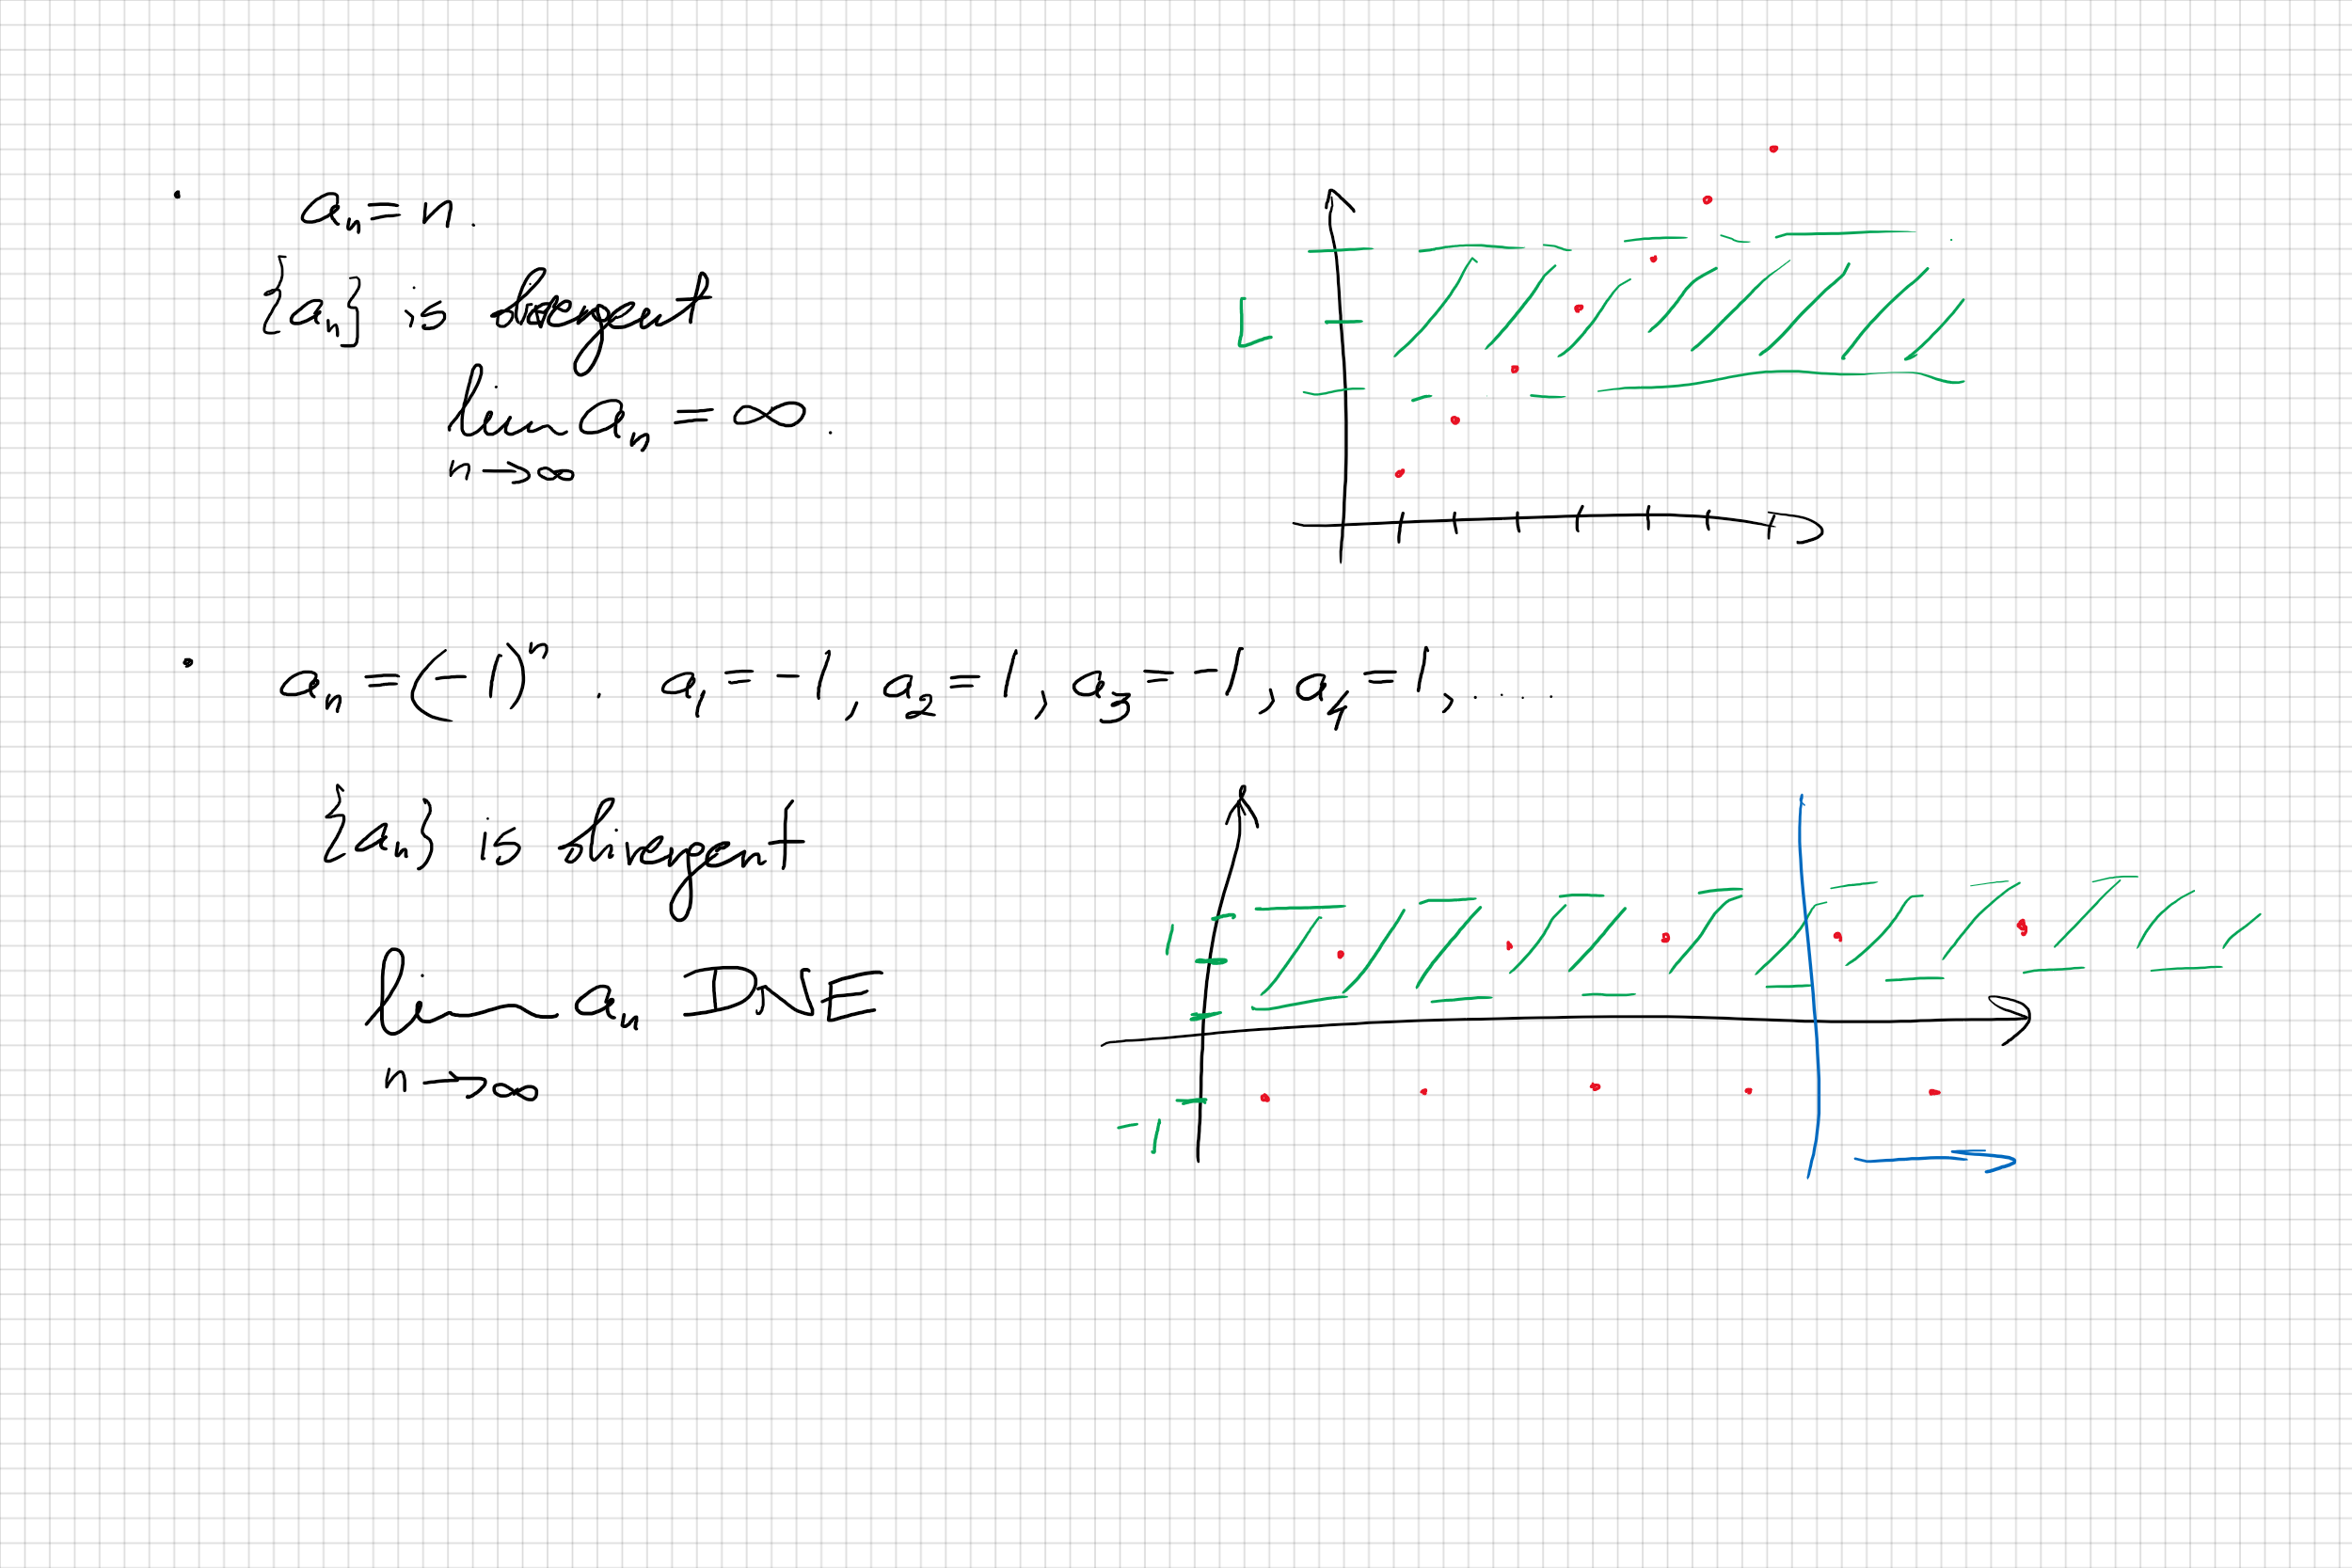 • aₙ = n.
{aₙ} is divergent
lim aₙ = ∞.
n→∞
L
• aₙ = (-1)ⁿ. a₁ = -1, a₂ = 1, a₃ = -1, a₄ = 1, ....
{aₙ} is divergent
lim aₙ DNE
n→∞
1
-1